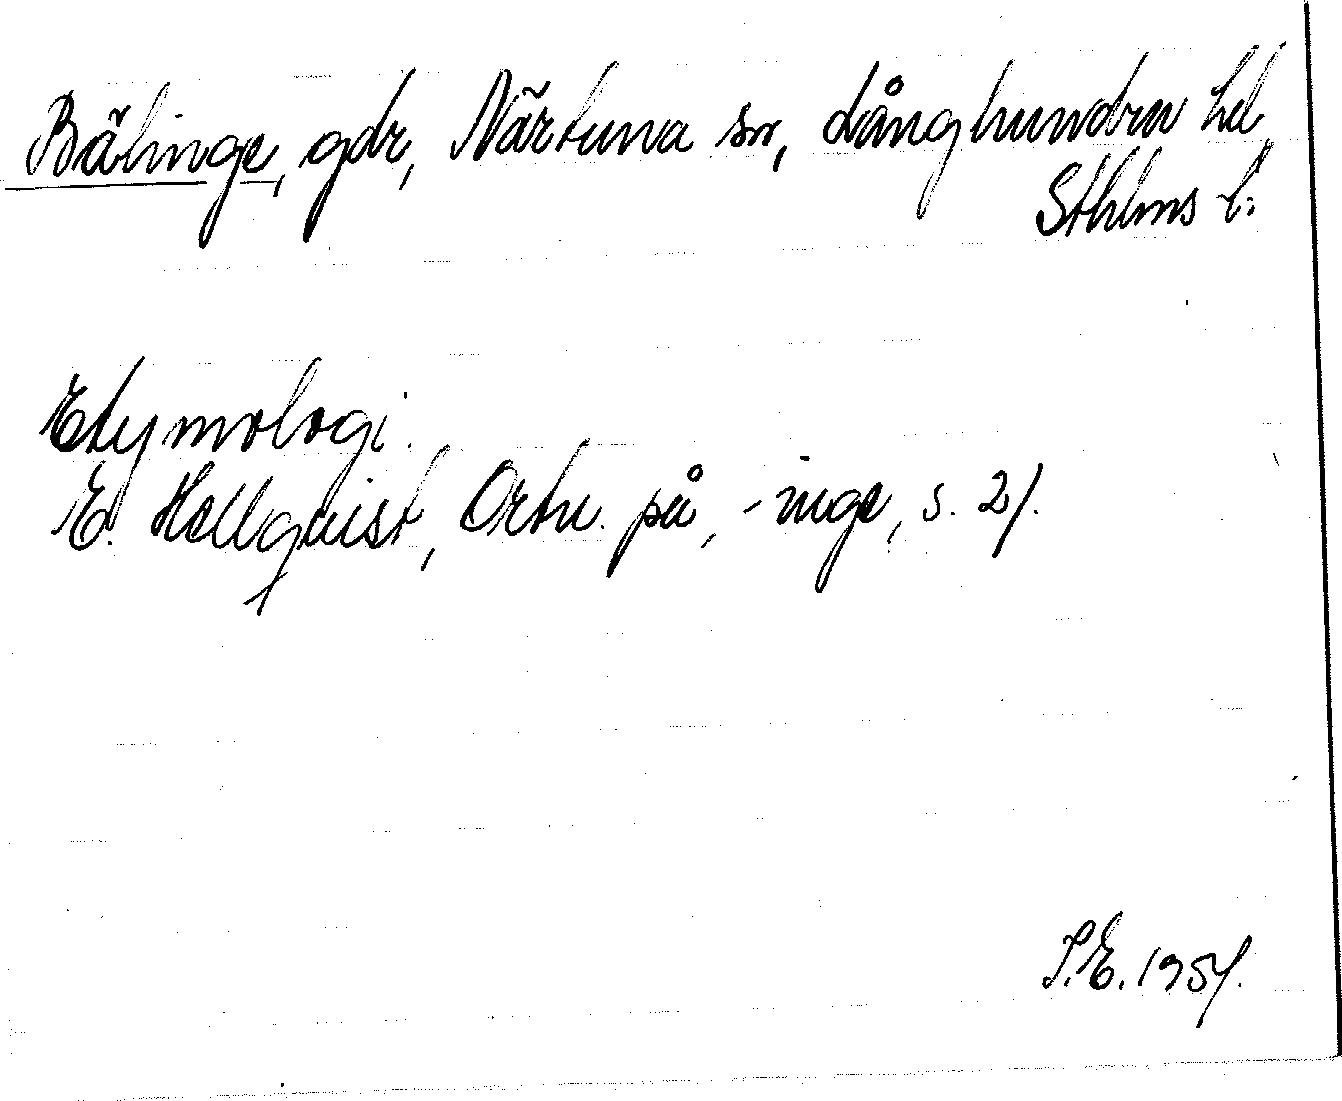 Bälinge, gdr, Närtuna sn, Långhundra hd,
Sthlms l.
Etymologi.
E. Hellquist, Ortn. på -inge, s. 21.
S.E. 1957.